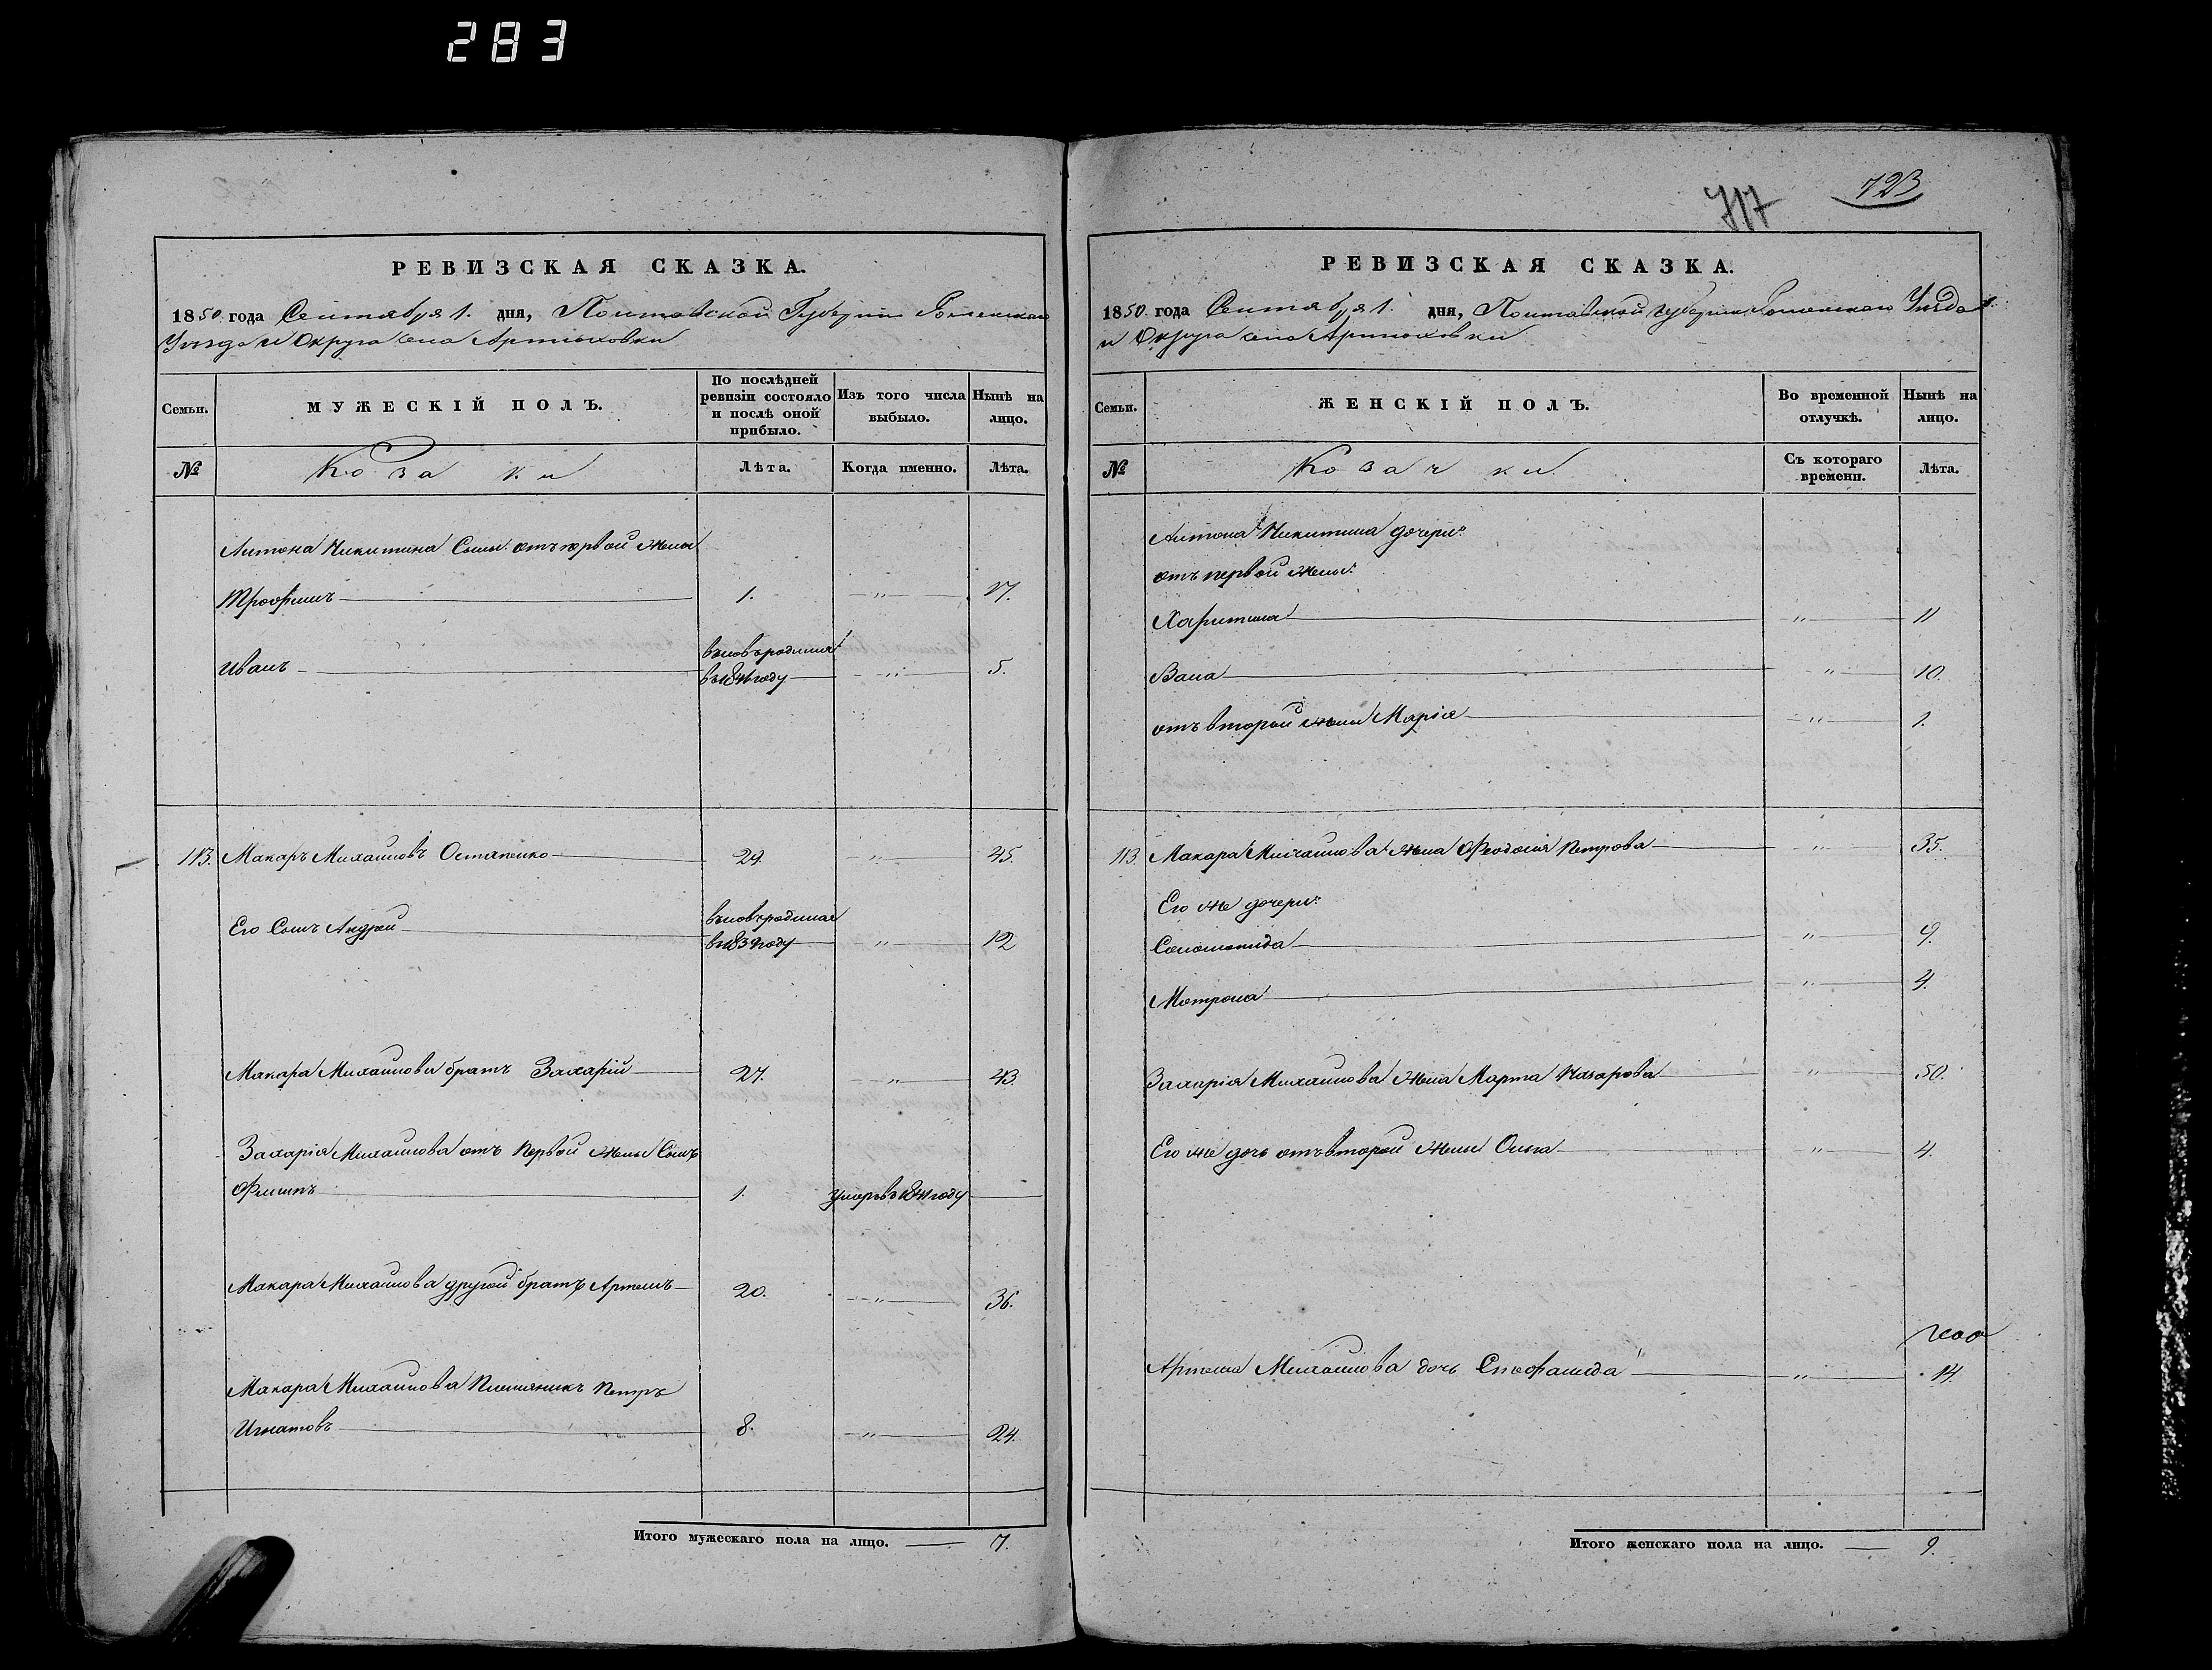 283
РЕВИЗСКАЯ СКАЗКА.
1850 года Сентября 1. дня, Полтавской Губерніи Роменскаго
Уѣзда и Округа села Артюховки
Семьи.
МУЖЕСКІЙ ПОЛЪ.
По послѣдней ревизіи состояло и послѣ оной прибыло.
Изъ того числа выбыло.
Нынѣ на лицо.
№
Козаки
Лѣта.
Когда именно.
Лѣта.
Антона Никитина Сыны отъ первой жены
Трофимъ 1. " 17.
Иванъ
вновь родился
въ 1846 году " 5.
113. Макаръ Михайловъ Остапенко 29. " 45.
Его Сынъ Андрей
вновь родился
въ 1839 году " 12
Макара Михайлова братъ Захарій 27. " 43.
Захарія Михайлова отъ Первой жены Сынъ
Филипъ 1. умеръ въ 1841 году
Макара Михайлова другой братъ Артемъ 20. " 36.
Макара Михайлова Племяникъ Петръ
Игнатовъ 8. " 24.
Итого мужескаго пола на лицо. 7.
717
723
РЕВИЗСКАЯ СКАЗКА.
1850 года Сентября 1. дня, Полтавской губерніи Роменскаго Уѣзда
и Округа села Артюховки
Семьи.
ЖЕНСКІЙ ПОЛЪ.
Во временной отлучкѣ.
Нынѣ на лицо.
№
Козачки
Съ котораго времени.
Лѣта.
Антона Никитина дочери:
отъ первой жены:
Харитина " 11
Васа " 10.
отъ второй жены Марія " 1.
113. Макара Михайлова жена Феодосія Петрова " 35.
Его же дочери:
Соломонида " 9.
Мотрона " 4.
Захарія Михайлова жена Марта Назарова " 50.
Его же дочь отъ второй жены Ольга " 4.
Артема Михайлова дочь " 14.
Итого женскаго пола на лицо. 9.